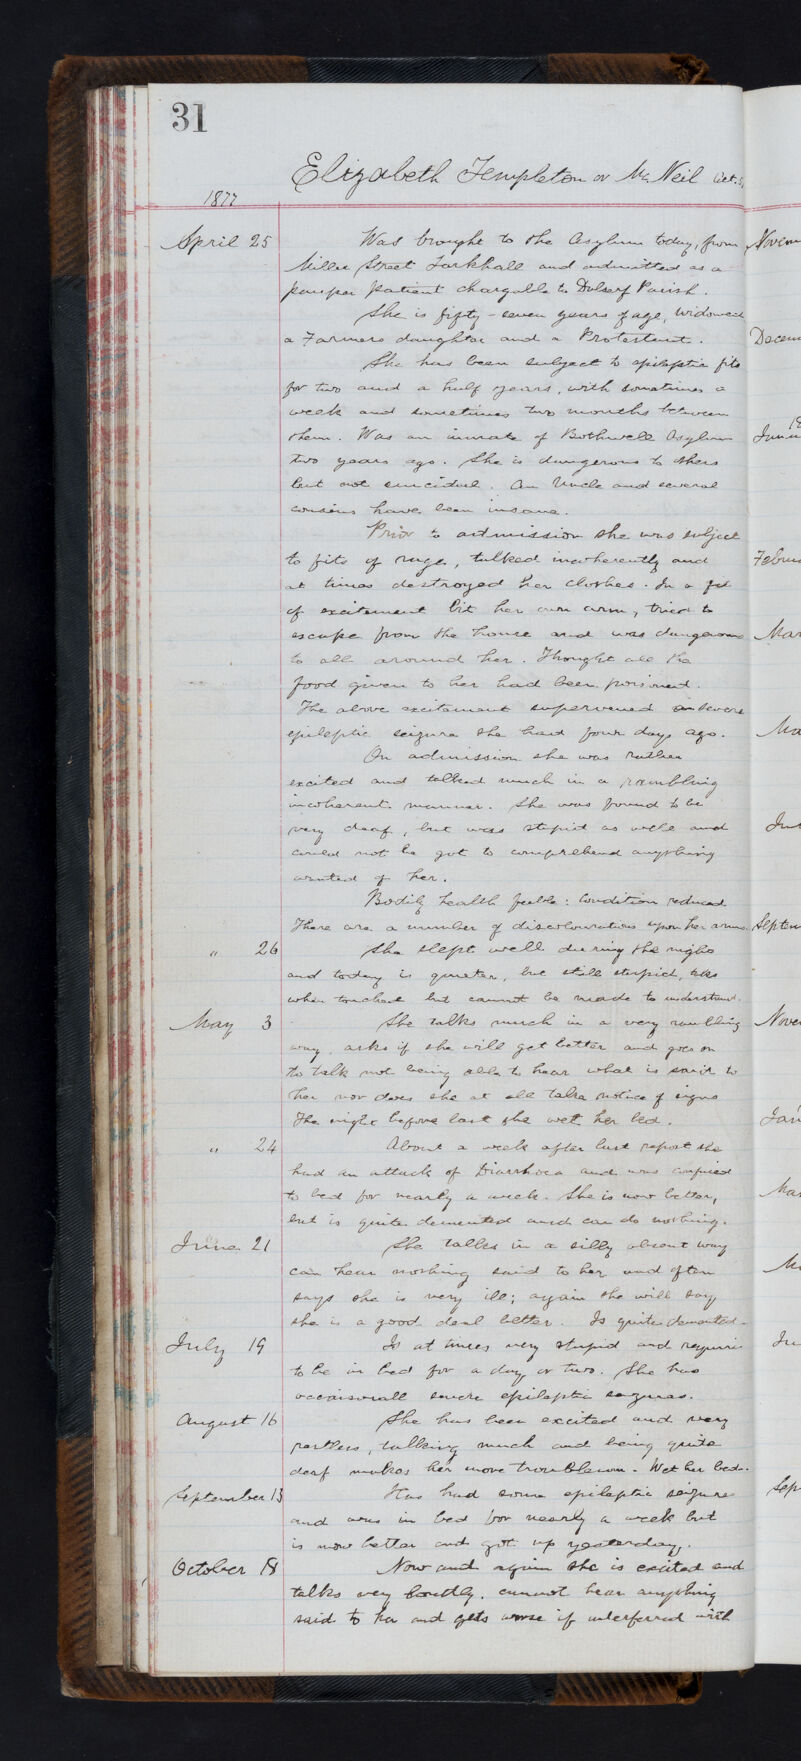 31
Elizabeth Templeton or McNeil Aet. 5
1877
April 25 Was brought to the Asylum today, from
Miller Street Larkhall and admitted as a
pauper patient chargable to Dalserf Parish.
She is fifty-seven years of age, widowed
a Farmers daughter and a Protestant.
She has been subject to epileptic fits
for two and a half years, with sometimes a
week and sometimes two months between
them. Was an inmate of Bothwell Asylum
two years ago. She is dangerous to others
but not suicidal. An Uncle and several
cousins have been insane.
Prior to admission she was subject
to fits of rage, talked incoherently and
at times destroyed her clothes. In a fit
of excitement bit her own arm, tried to
escape from the house and was dangerous
to all around her. Thought all the
food given to her had been poisoned.
The above excitement supervened on severe
epileptic seizure she had four days ago.
On admission she was rather
excited and talked much in a rambling
incoherent manner. She was found to be
very deaf, but was stupid as well and
could not be got to comprehend anything
wanted of her.
Bodily health feeble: Condition reduced
There are a number of discolourations upon her arms.
" 26 She slept well during the night
and today is quieter, but still stupid, talks
when touched but cannot be made to understand.
May 3 She talks much in a very rambling
way, asks if she will get better and goes on
to talk not being able to hear what is said to
her nor does she at all take notice of signs
The night before last she wet her bed.
" 24 About a week after last report she
had an attack of Diarrhoea and was confined
to bed for nearly a week. She is now better,
but is quite demented and can do nothing.
June 21 She talks in a silly absent way
can hear nothing said to her and often
says she is very ill; again she will say
she is a good deal better. Is quite demented.
July 19 Is at times very stupid and requires
to be in bed for a day or two. She has
occaisonall severe epileptic seizures.
August 16 She has been excited and very
restless, talking much and being quite
deaf makes her more troublesome. Wet her bed.
September 13 Has had some epileptic seizures
and was in bed for nearly a week but
is now better and got up yesterday.
October 18 Now and again she is excited and
talks very loudly. cannot hear anything
said to her and gets worse if interferred with
Novem
Decem
18
Febru
Mar
Septem
Nove
Jan
Mar
Sep